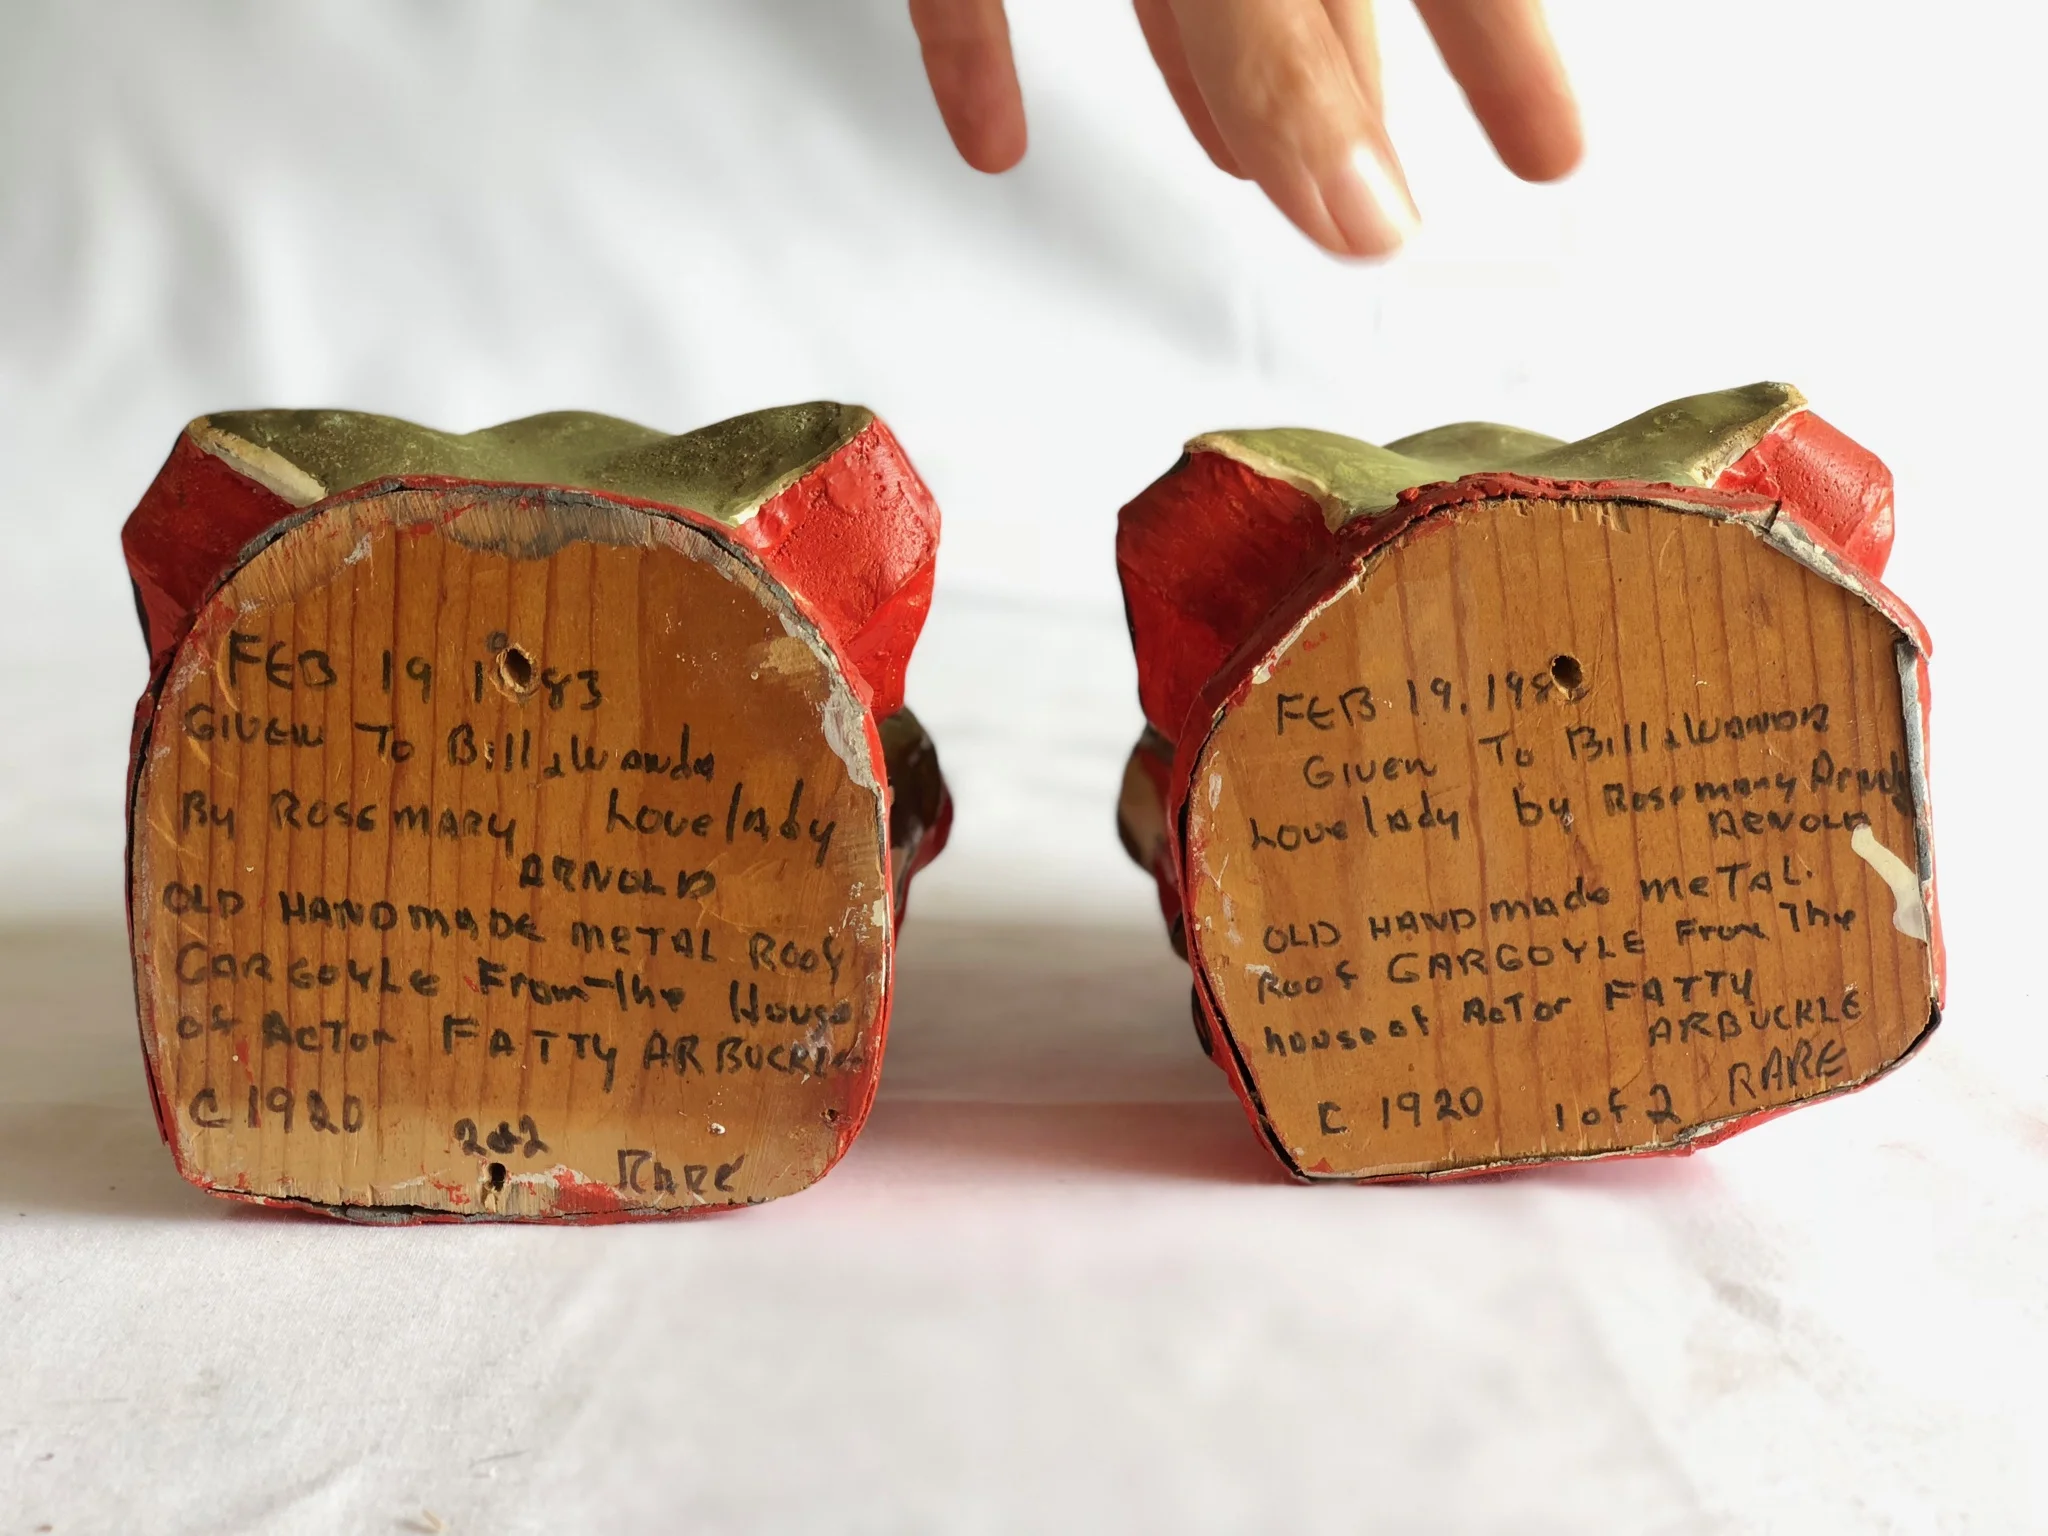 FEB 19 1983
GIVEN To Bill & Wanda
By ROSEMARY Lovelady
ARNOLD
OLD HANDMADE METAL ROOF
GARGOYLE From The House
of ActOR FATTY ARBUCKLE
C 1920
2 of 2
RARE
FEB 19, 1983
GIVEN To Bill & WANDA
Lovelady by Rosemary Arnold
ARNOLD
OLD HANDmade meTAL.
Roof GARGOYLE From The
house of AcTor FATTY
ARBUCKLE
C 1920 1 of 2 RARE